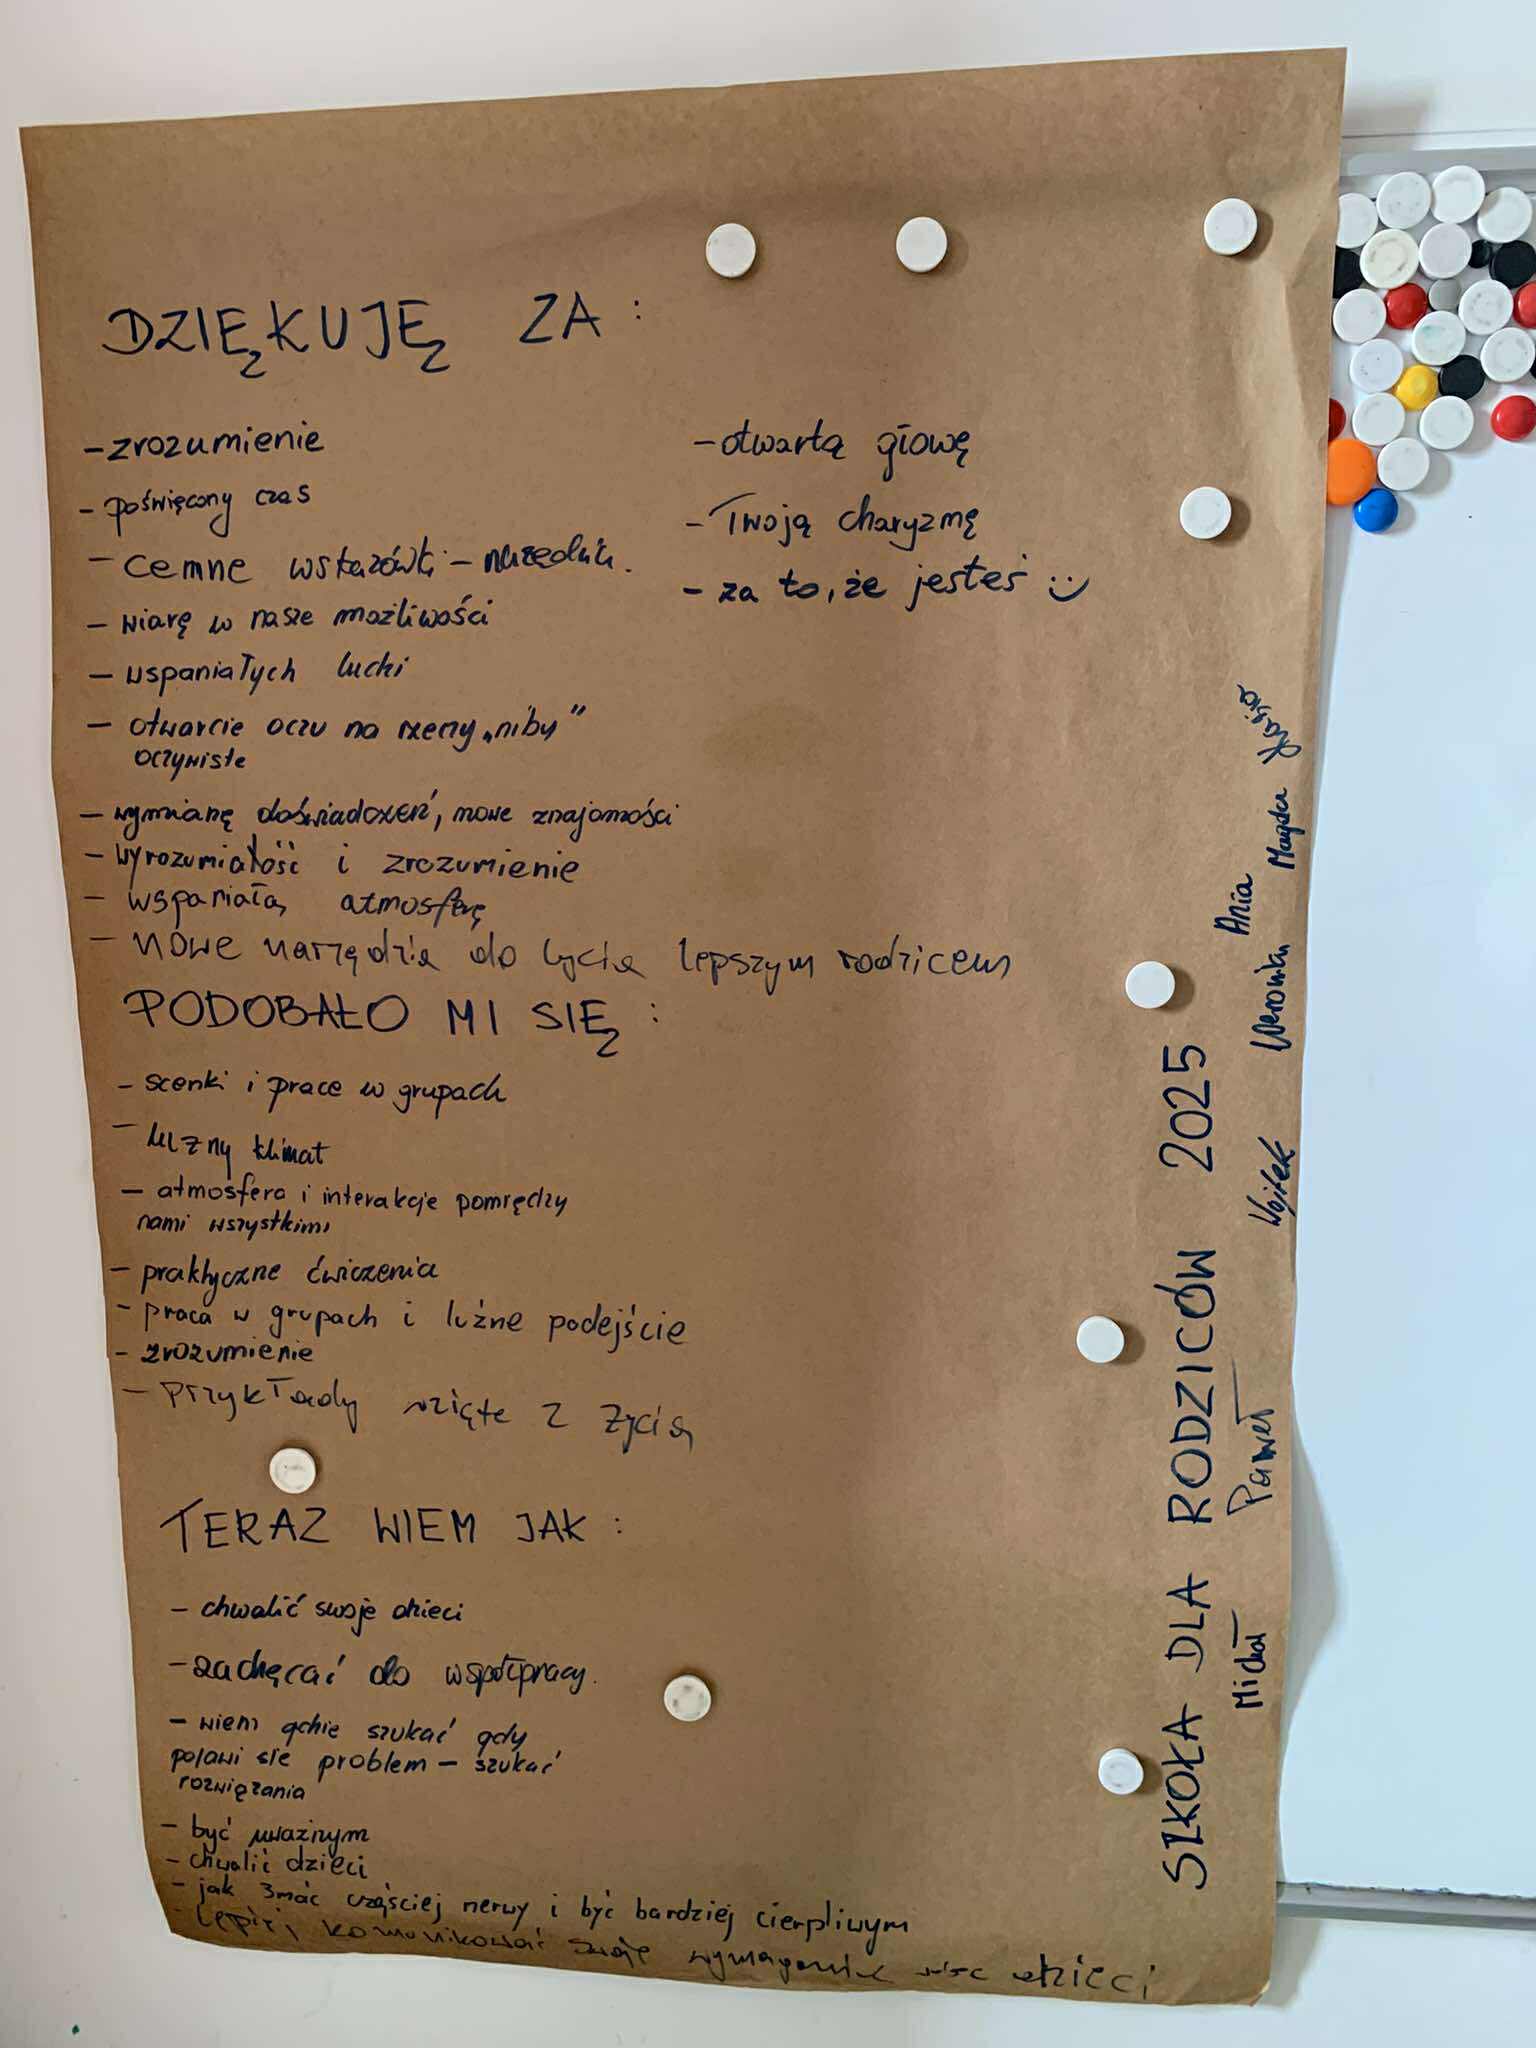 DZIĘKUJĘ ZA :
- zrozumienie
- poświęcony czas
- cenne wskazówki - narzędzia.
- wiarę w nasze możliwości
- wspaniałych ludzi
- otwarcie oczu na rzeczy „niby”
oczywiste
- wymianę doświadczeń, nowe znajomości
- wyrozumiałość i zrozumienie
- wspaniałą atmosferę
- nowe narzędzia do bycia lepszym rodzicem
- otwartą głowę
- Twoją charyzmę
- za to, że jesteś :)
PODOBAŁO MI SIĘ :
- scenki i prace w grupach
- luźny klimat
- atmosfera i interakcje pomiędzy
nami wszystkimi
- praktyczne ćwiczenia
- praca w grupach i luźne podejście
- zrozumienie
- przykłady wzięte z życia
TERAZ WIEM JAK :
- chwalić swoje dzieci
- zachęcać do współpracy.
- wiem gdzie szukać gdy
pojawi sie problem - szukać
rozwiązania
- być uważnym
- chwalić dzieci
- jak 3mać częściej nerwy i być bardziej cierpliwym
- lepiej komunikować swoje wymagania dzieci
SZKOŁA DLA RODZICÓW 2025
Michał Paweł Wojtek Weronika Ania Magda Kasia